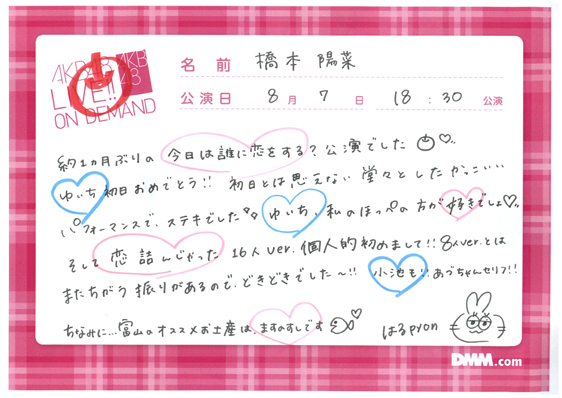 AKB48 AKB48
LIVE!!
ON DEMAND
名前 橋本 陽菜
公演日 8月7日 18:30公演
約1ヵ月ぶりの 今日は誰に恋をする?公演でした
ゆいち初日おめでとう!! 初日とは思えない 堂々としたかっこいい
パフォーマンスで、ステキでした ゆいち、私のほっぺの方が好きでしょ♡
そして 恋詰んじゃった 16人ver. 個人的初めまして!! 8人ver.とは
またちがう 振りがあるので、どきどきでした〜!! 小池もり!!あづちゃんセリフ!!
ちなみに...富山のオススメお土産は、ますのすしです
はるpyon
DMM.com